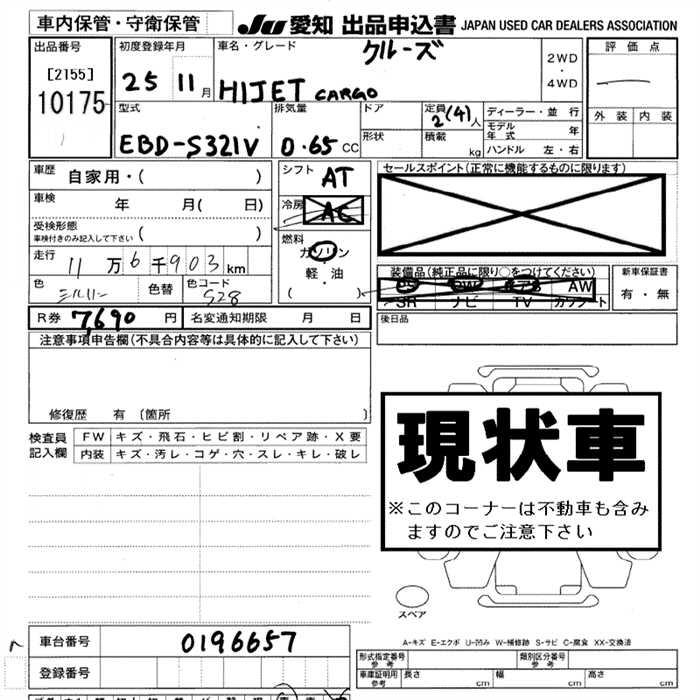 車内保管・守衛保管
JU 愛知 出品申込書 JAPAN USED CAR DEALERS ASSOCIATION
出品番号
[2155]
10175
初度登録年月
25 11月
車名・グレード
クルーズ
HIJET CARGO
2WD
・
4WD
評価点
外装 内装
型式
EBD-S321V
排気量
0.65 CC
ドア
形状
定員
2(4)人
積載
kg
ディーラー・並行
モデル年式 年
ハンドル 左・右
車歴
自家用・( )
車検
年 月( 日)
受検形態
車検付きのみ記入して下さい ( )
走行
11万6千903km
色
シルバー
色替
色コード
S28
シフト
AT
冷房
AC
燃料
ガソリン
・
軽・油
( )
セールスポイント(正常に機能するものに限ります)
装備品(純正品に限り○をつけてください)
PS PW エアB AW
SR ナビ TV カワシート
新車保証書
有・無
R券 7,690 円
名変通知期限 月 日
後日品
注意事項申告欄(不具合内容等は具体的に記入して下さい)
修復歴 有 〔箇所 〕
検査員
記入欄
FW キズ・飛石・ヒビ割・リペア跡・X要
内装 キズ・汚レ・コゲ・穴・スレ・キレ・破レ
現状車
※このコーナーは不動車も含み
ますのでご注意下さい
スペア
A-キズ E-エクボ U-凹み W-補修跡 S-サビ C-腐食 XX-交換済
車台番号
0196657
登録番号
形式指定番号
参考
類別区分番号
参考
車庫証明用
参考
長さ cm
幅 cm
高さ cm